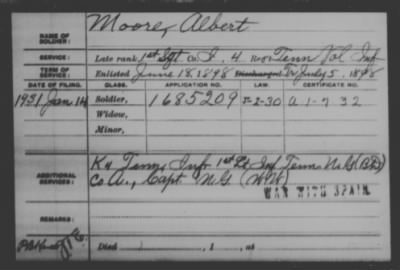 NAME OF SOLDIER: Moore, Albert
SERVICE: Late rank, 1st Sgt. Co. I, 4 Reg't Tenn Vol Inf
TERM OF SERVICE: Enlisted June 18, 1898 Discharged Tr July 5, 1898
DATE OF FILING. CLASS. APPLICATION NO. LAW. CERTIFICATE NO.
1931 Jan 14 Soldier, 1685209 J-2-30 A 1-7 32
Widow,
Minor,
ADDITIONAL SERVICES: K 4 Tenn. Inf 1st Lt Inf Tenn N.G.
Co A., Capt N.G. (W.W.)
WAR WITH SPAIN
REMARKS:
Died , 1 , at